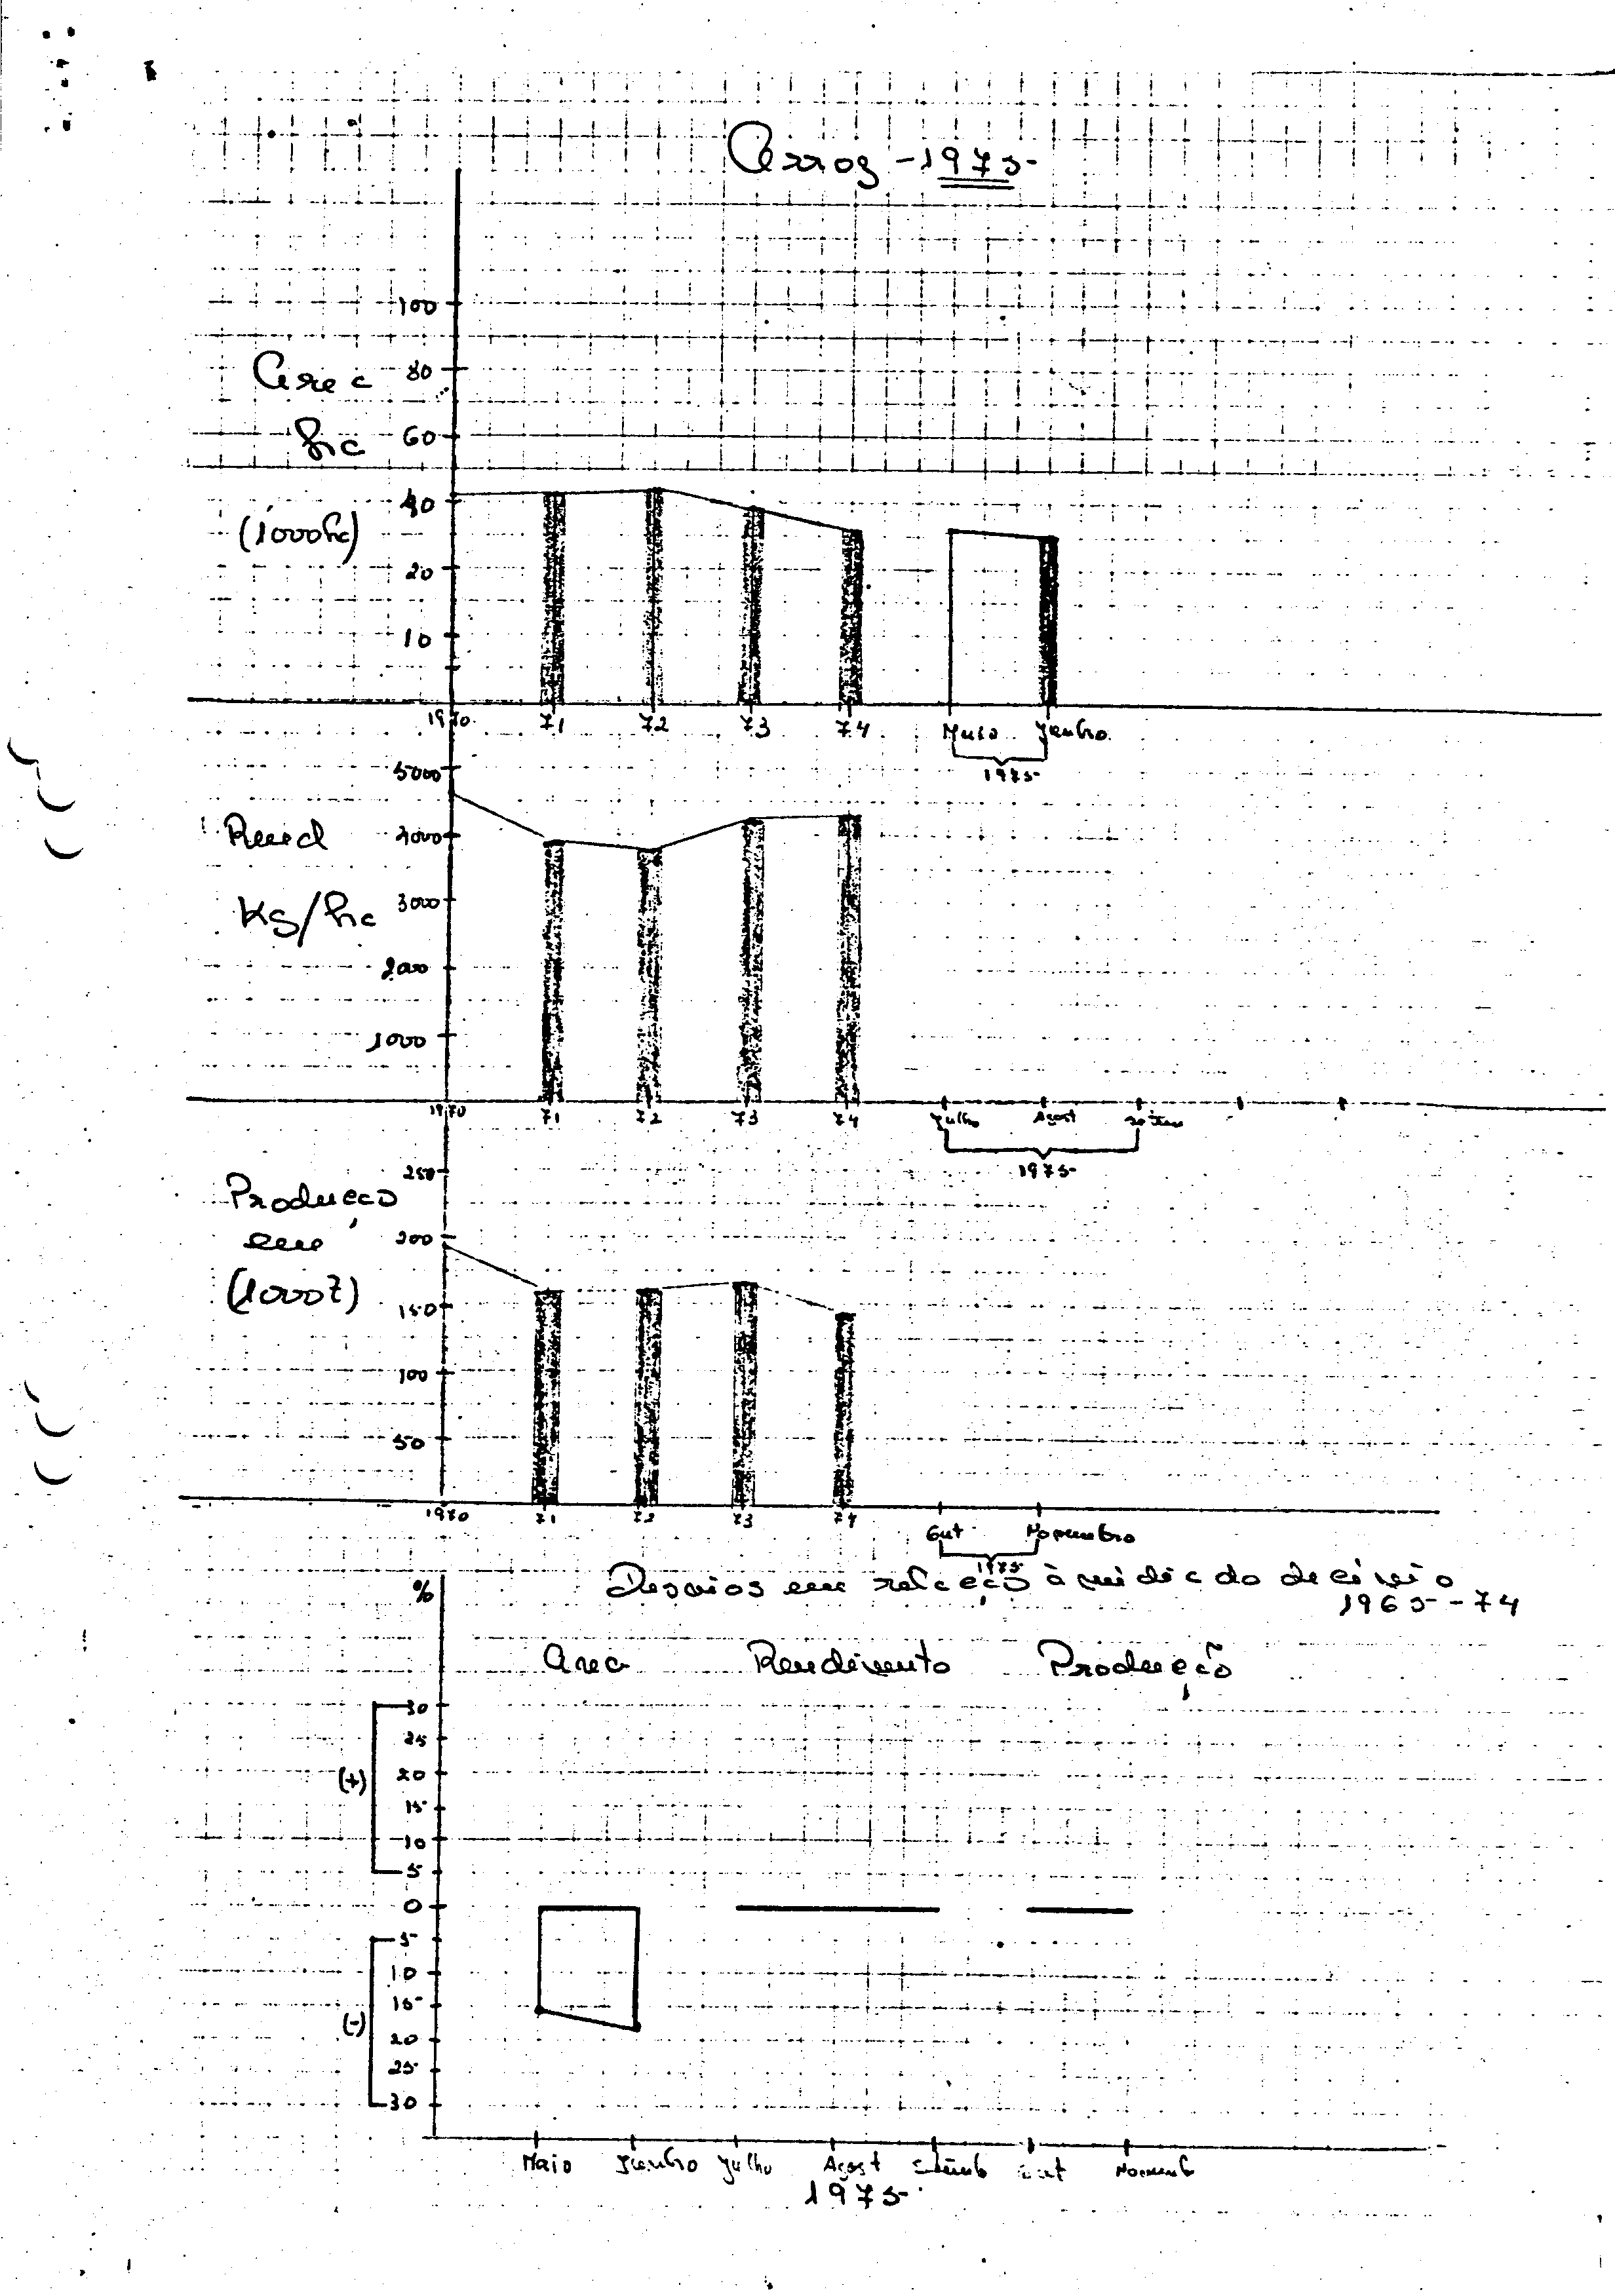 Arroz - 1975
100
Area 80
ha 60
40
(1000ha)
20
10
1970 71 72 73 74 Maio Junho
1975
5000
Rend 4000
Kg/ha 3000
2000
1000
1970 71 72 73 74 Julho Agost
1975
250
Produção
em 200
(1000t) 150
100
50
1970 71 72 73 74 Out Novembro
1975
% Desvios em relação à média do decénio
1965-74
Area Rendimento Produção
30
25
(+) 20
15
10
5
0
5
10
15
(-) 20
25
30
Maio Junho Julho Agost Setemb Out Novemb
1975